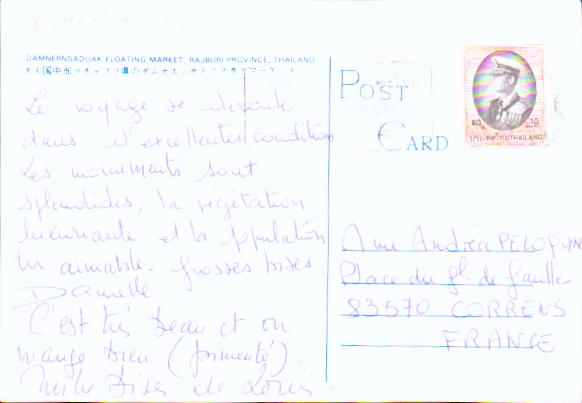 DAMNERNSADUAK FLOATING MARKET, RAJBURI PROVINCE, THAILAND
POST
CARD
ประเทศไทย THAILAND
Le voyage se déroule
dans d'excellentes conditions
Les monuments sont
splendides, la végétation
luxuriante et la population
très aimable. Grosses bises
Danielle
C'est très beau et on
mange bien (pimenté).
Mille bises de Louis
Mme Andréa PELOQUIN
Place du Gl. de Gaulle
83570 CORRENS
FRANCE